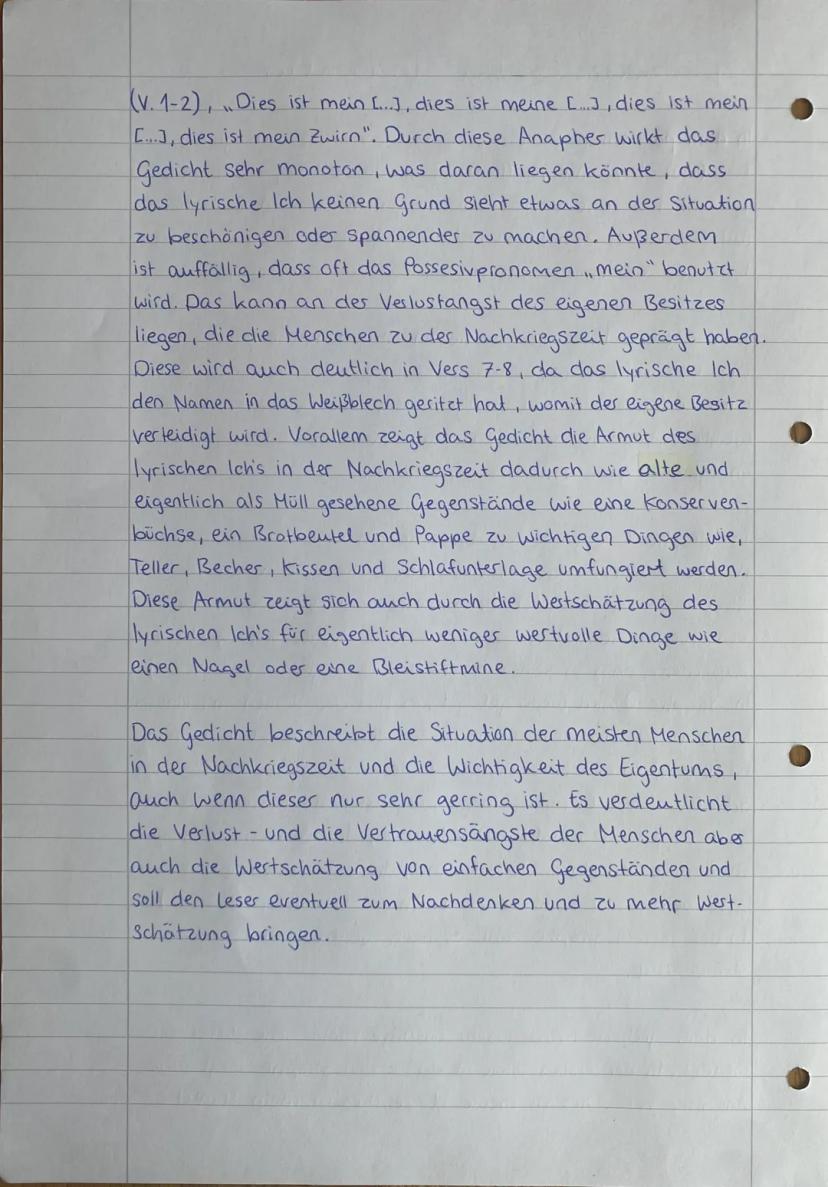 (V. 1-2), „Dies ist mein [...], dies ist meine [...], dies ist mein
[...], dies ist mein Zwirn". Durch diese Anapher wirkt das
Gedicht sehr monoton, was daran liegen könnte, dass
das lyrische Ich keinen Grund sieht etwas an der Situation
zu beschönigen oder spannender zu machen. Außerdem
ist auffällig, dass oft das Possesivpronomen „mein" benutzt
wird. Das kann an der Verlustangst des eigenen Besitzes
liegen, die die Menschen zu der Nachkriegszeit geprägt haben.
Diese wird auch deutlich in Vers 7-8, da das lyrische Ich
den Namen in das Weißblech geritzt hat, womit der eigene Besitz
verteidigt wird. Vorallem zeigt das Gedicht die Armut des
lyrischen Ich's in der Nachkriegszeit dadurch wie alte und
eigentlich als Müll gesehene Gegenstände wie eine Konserven-
büchse, ein Brotbeutel und Pappe zu wichtigen Dingen wie,
Teller, Becher, Kissen und Schlafunterlage umfungiert werden.
Diese Armut zeigt sich auch durch die Wertschätzung des
lyrischen Ich's für eigentlich weniger wertvolle Dinge wie
einen Nagel oder eine Bleistiftmine.
Das Gedicht beschreibt die Situation der meisten Menschen
in der Nachkriegszeit und die Wichtigkeit des Eigentums,
auch wenn dieser nur sehr gerring ist. Es verdeutlicht
die Verlust- und die Vertrauensängste der Menschen aber
auch die Wertschätzung von einfachen Gegenständen und
soll den Leser eventuell zum Nachdenken und zu mehr Wert-
schätzung bringen.